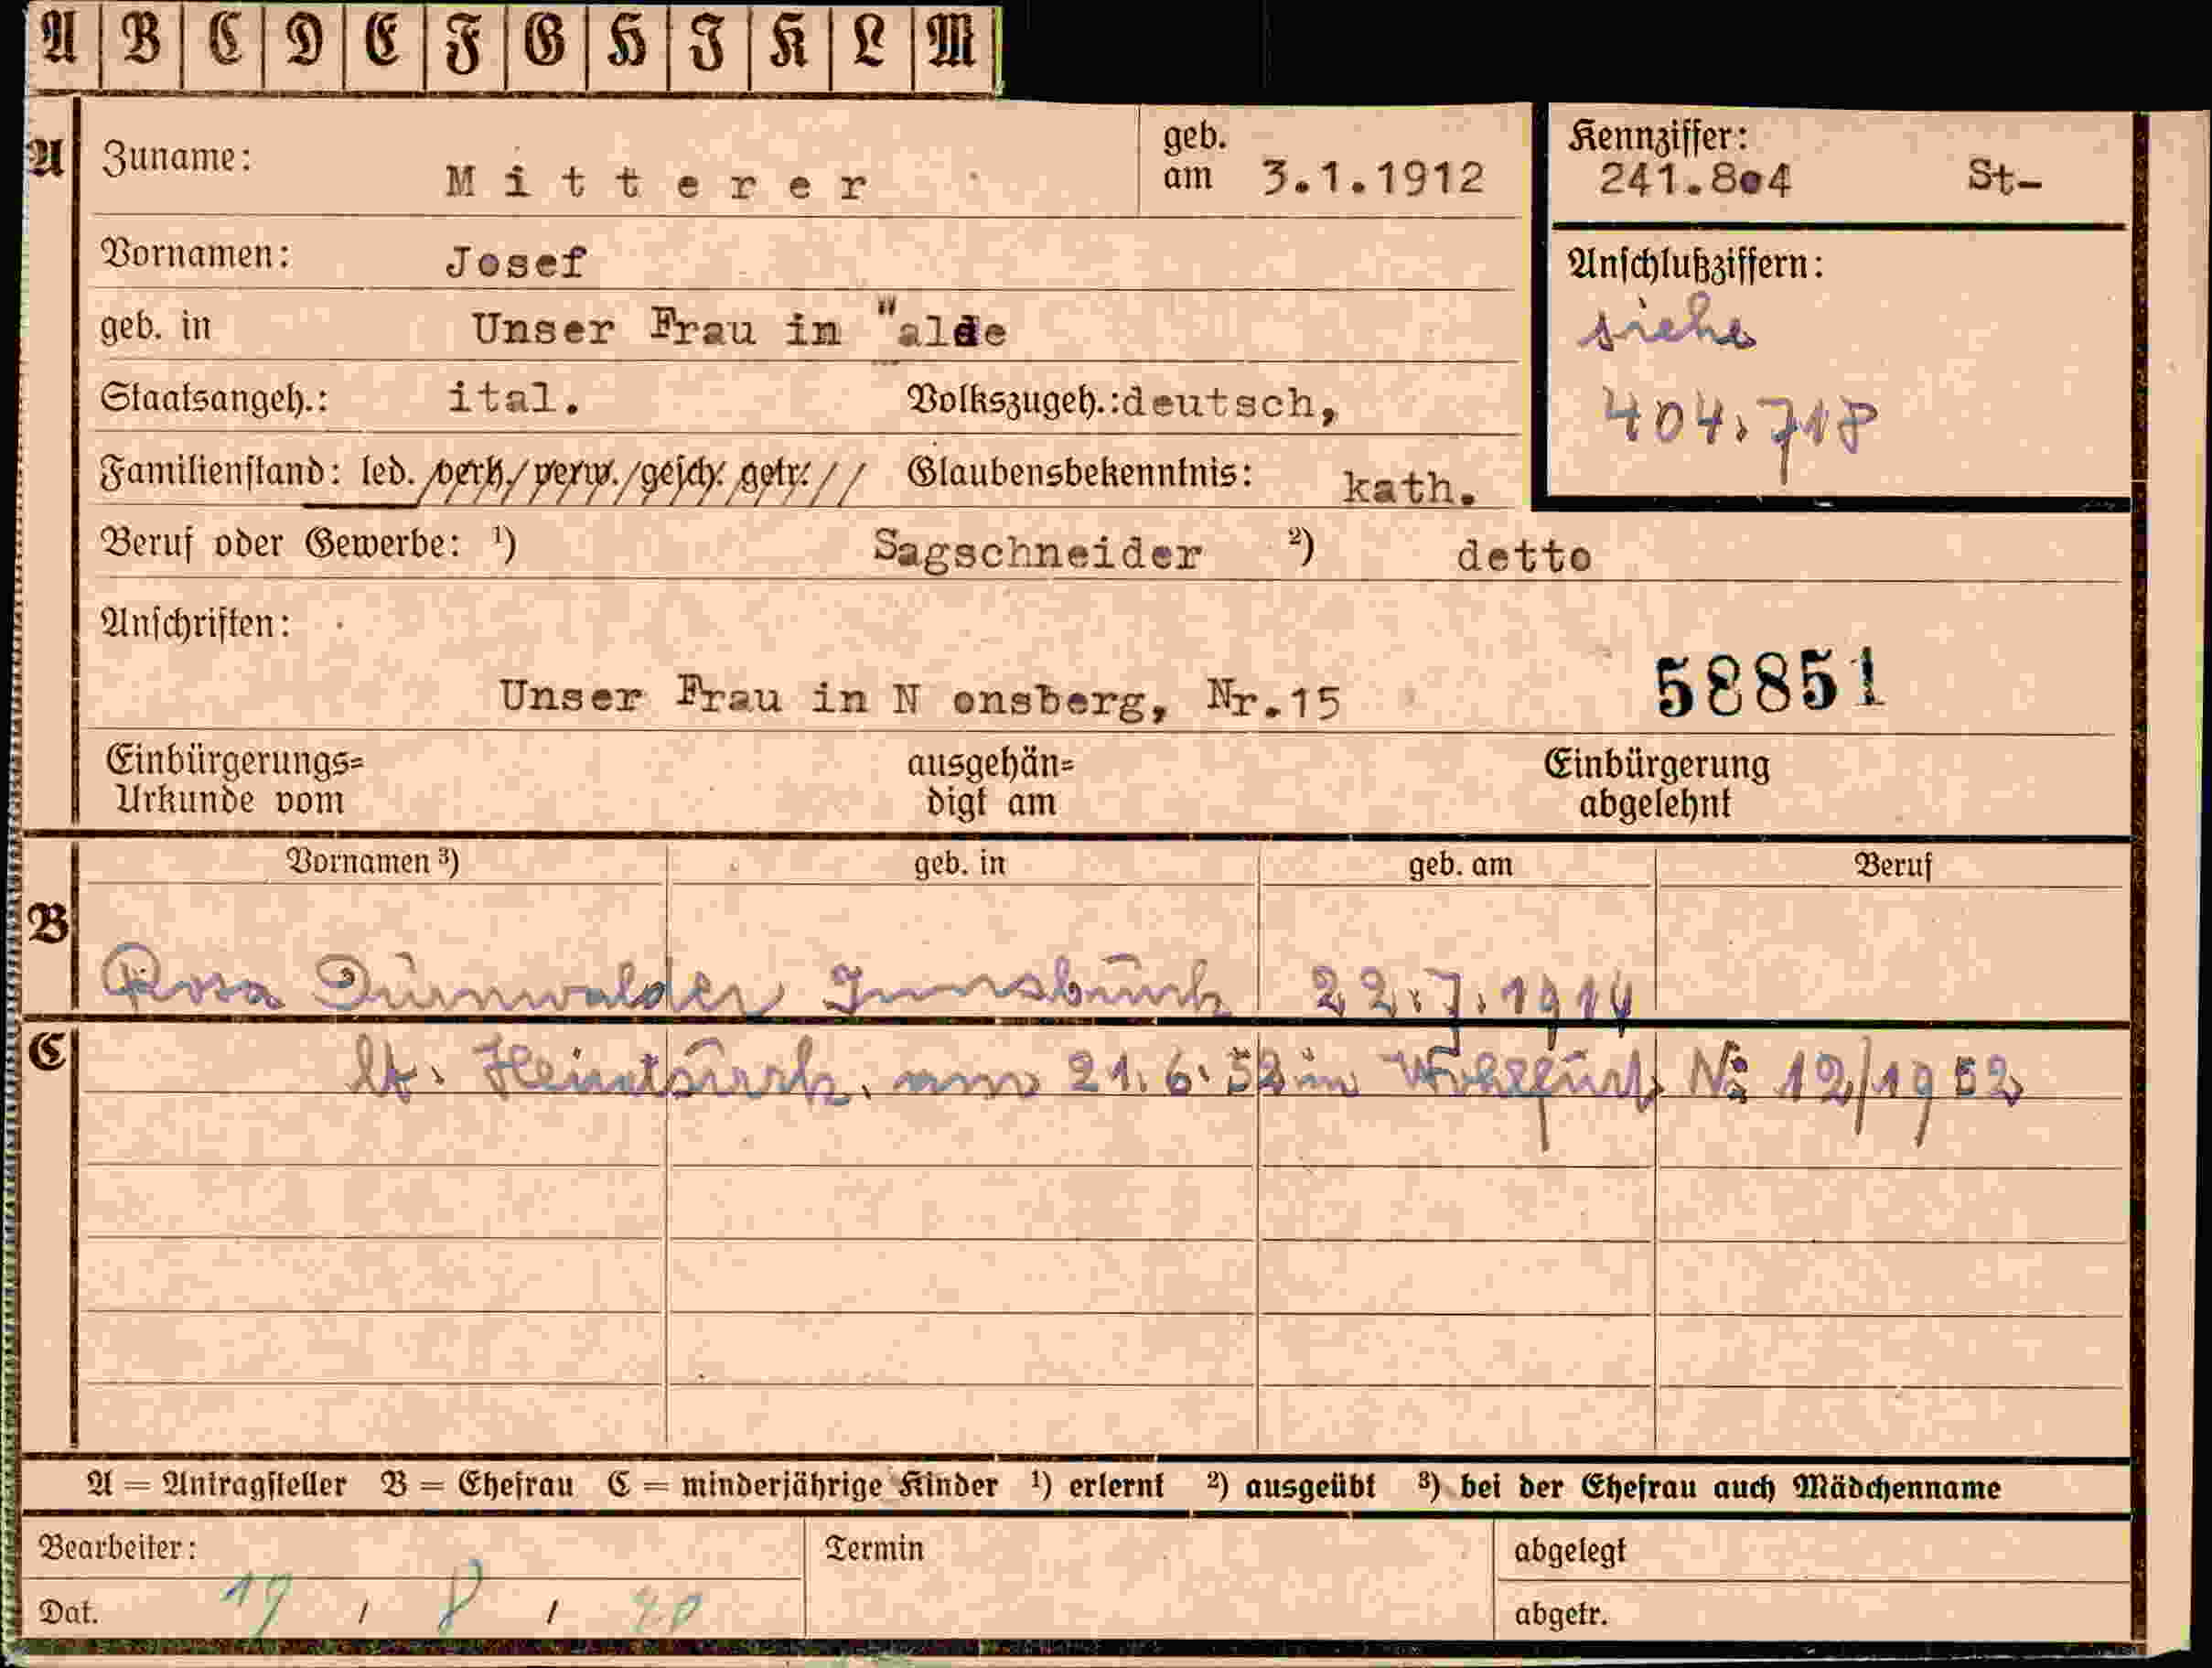 A B C D E F G H I K L M
A Zuname: Mitterer geb. am 3.1.1912 Kennziffer: 241.804 St-
Vornamen: Josef Anschlußziffern:
geb. in Unser Frau in "alde siehe
Staatsangeh.: ital. Volkszugeh.: deutsch, 404.718
Familienstand: led. verh. verw. gesch. getr. Glaubensbekenntnis: kath.
Beruf oder Gewerbe: ¹) Sagschneider ²) detto
Anschriften:
Unser Frau in N onsberg, Nr.15 58851
Einbürgerungs= ausgehän= Einbürgerung
Urkunde vom digt am abgelehnt
Vornamen ³) geb. in geb. am Beruf
B
Rosa Dürnwalder Innsbruck 22.7.1914
C lt. Heiratsurk. am 21.6.52 in Nr 12/1952
A = Antragsteller B = Ehefrau C = minderjährige Kinder ¹) erlernt ²) ausgeübt ³) bei der Ehefrau auch Mädchenname
Bearbeiter: Termin abgelegt
Dat. 19 / 8 / 40 abgetr.